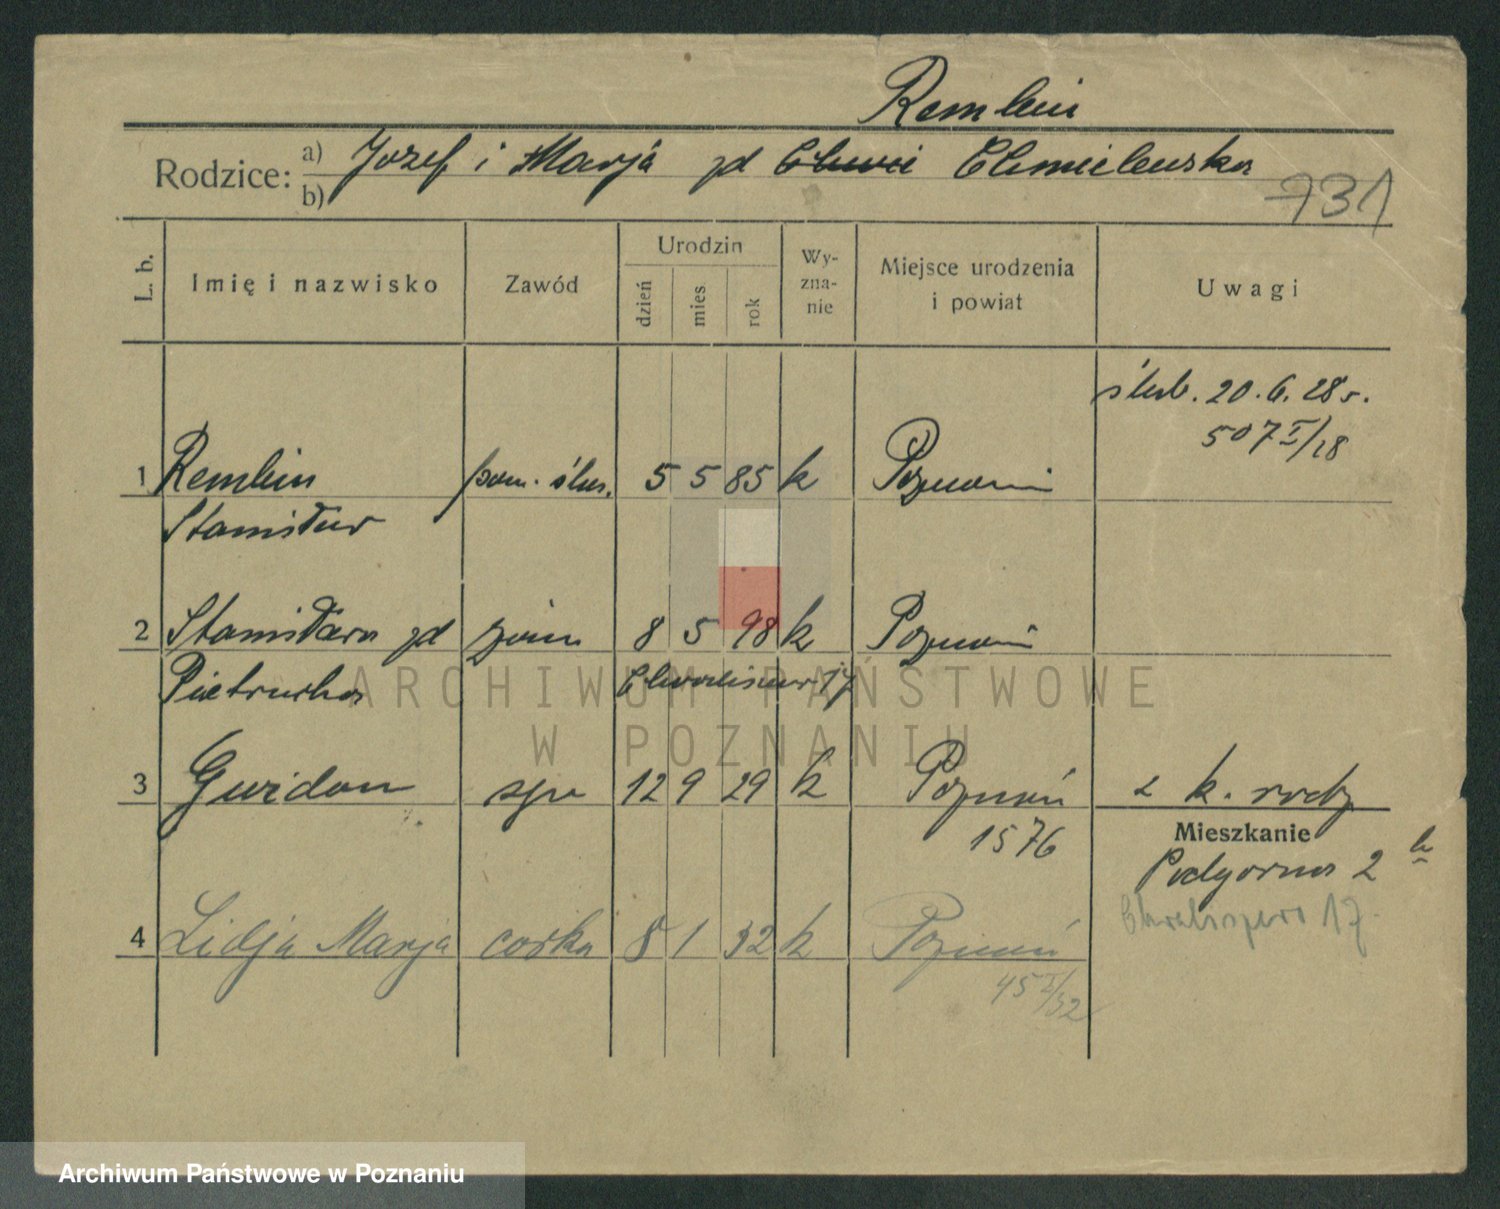 Remlein
Rodzice: a) Józef i Marja zd Chmielewska
b)
731
L. b.
Imię i nazwisko
Zawód
Urodzin
dzień
mies
rok
Wy-
zna-
nie
Miejsce urodzenia
i powiat
Uwagi
ślub. 20.6.28 r.
507 I/28
1 Remlein pom. ślus. 5 5 85 k Poznań
Stanisław
2 Stanisława zd żona 8 5 98 k Poznań
Pietrucha Chwaliszewo 17
3 Gwidon syn 12 9 29 k Poznań 2 k. rodz
1576
Mieszkanie
Podgórna 2
Chwaliszewo 17
4 Lidja Marja córka 8 1 32 k Poznań
45 I/32
ARCHIWUM PAŃSTWOWE
W POZNANIU
Archiwum Państwowe w Poznaniu